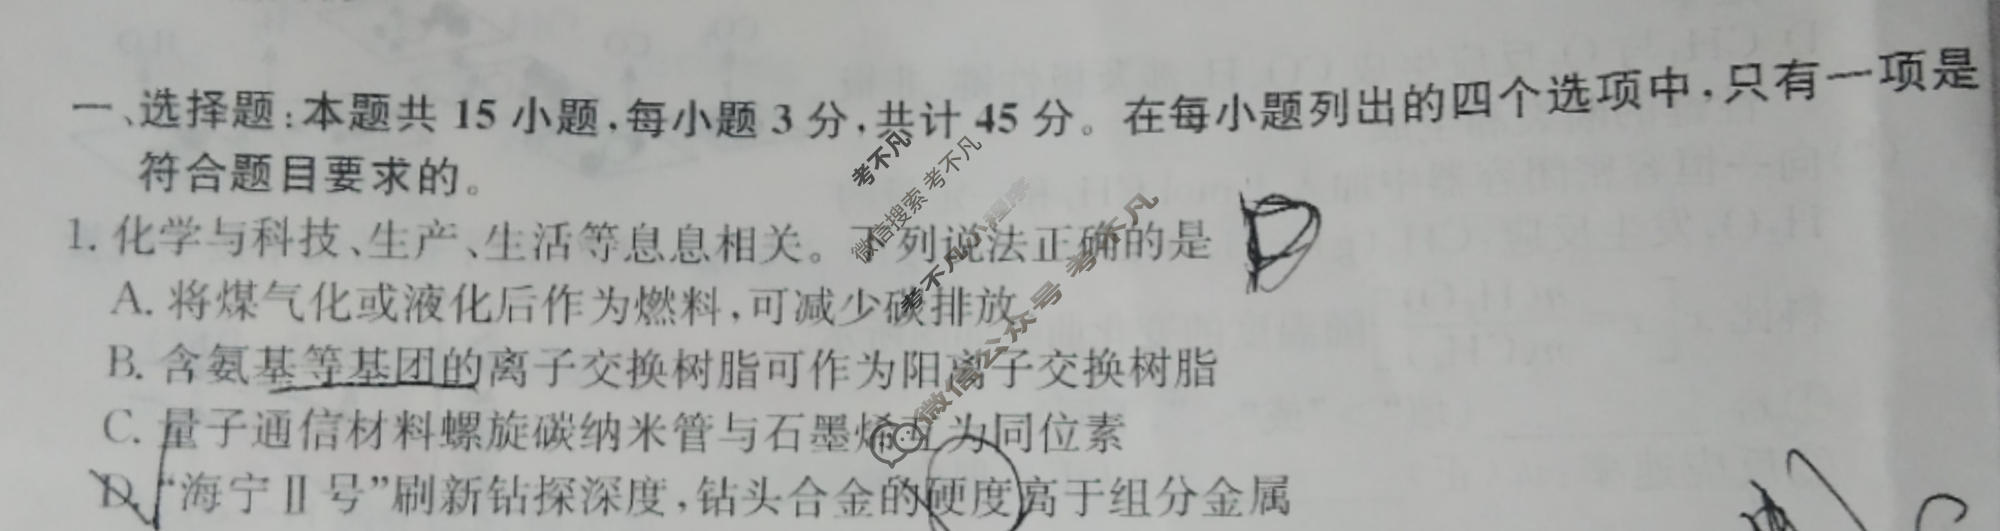 一、选择题:本题共 15 小题,每小题 3 分,共计 45 分。在每小题列出的四个选项中,只有一项是
符合题目要求的。
1. 化学与科技、生产、生活等息息相关。下列说法正确的是 D
A. 将煤气化或液化后作为燃料,可减少碳排放
B. 含氨基等基团的离子交换树脂可作为阳离子交换树脂
C. 量子通信材料螺旋碳纳米管与石墨烯互为同位素
D. “海宁Ⅱ号”刷新钻探深度,钻头合金的硬度高于组分金属
考不凡
微信搜索 考不凡
考不凡小程序
微信公众号 考不凡